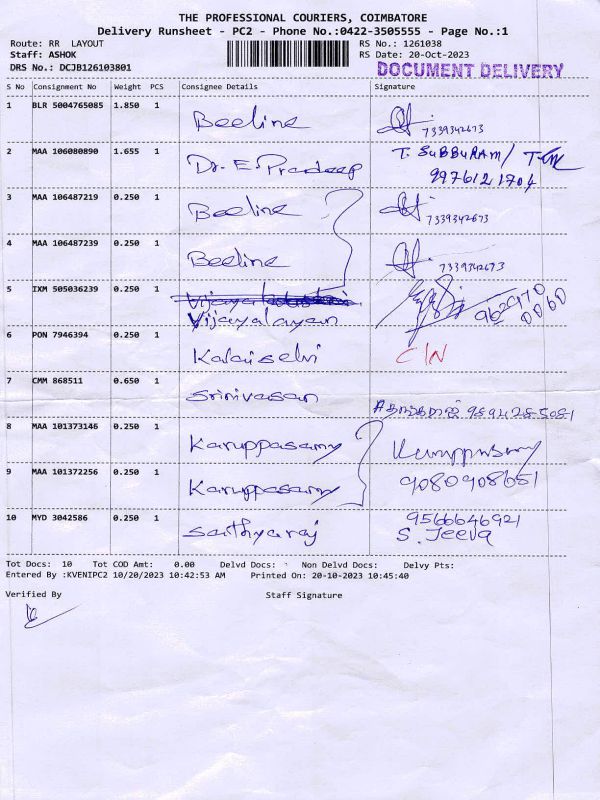 THE PROFESSIONAL COURIERS, COIMBATORE
Delivery Runsheet - PC2 - Phone No.:0422-3505555 - Page No.:1
Route: RR LAYOUT RS No.: 1261038
Staff: ASHOK RS Date: 20-Oct-2023
DRS No.: DCJB126103801 DOCUMENT DELIVERY
S No Consignment No Weight PCS Consignee Details Signature
1 BLR 5004765085 1.850 1 Beeline 7339342673
2 MAA 106080890 1.655 1 Dr. E. Pradeep T. SUBBURAM/
9976121704
3 MAA 106487219 0.250 1 Beeline 7339342673
4 MAA 106487239 0.250 1 Beeline 7339342673
5 IXM 505036239 0.250 1
Vijayalayan
6 PON 7946394 0.250 1 Kalaiselvi C/N
7 CMM 868511 0.650 1 Srinivasan
8 MAA 101373146 0.250 1 Karuppasamy Karuppasamy
9 MAA 101372256 0.250 1 Karuppasamy 9080908651
10 MYD 3042586 0.250 1 Sathyaraj 9566646921
S. Jeeva
Tot Docs: 10 Tot COD Amt: 0.00 Delvd Docs: Non Delvd Docs: Delvy Pts:
Entered By :KVENIPC2 10/20/2023 10:42:53 AM Printed On: 20-10-2023 10:45:40
Verified By Staff Signature